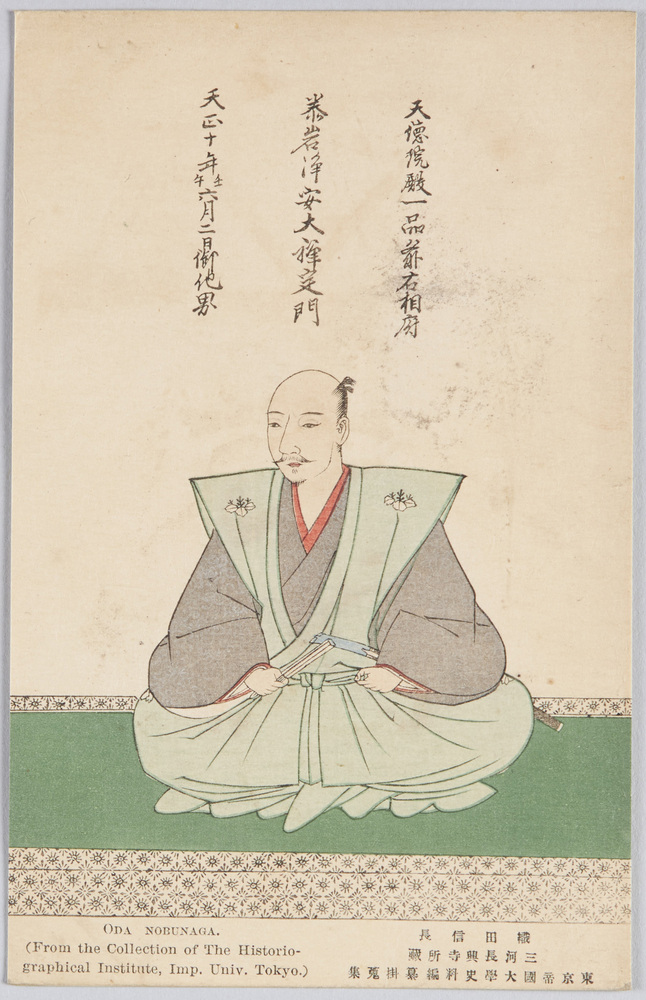 天德院殿一品前右相府
泰岩淨安大禪定門
天正十年壬午六月二日御他界
ODA NOBUNAGA.
(From the Collection of The Historio-
graphical Institute, Imp. Univ. Tokyo.)
織田信長
三河長興寺所藏
東京帝國大學史料編纂掛蒐集